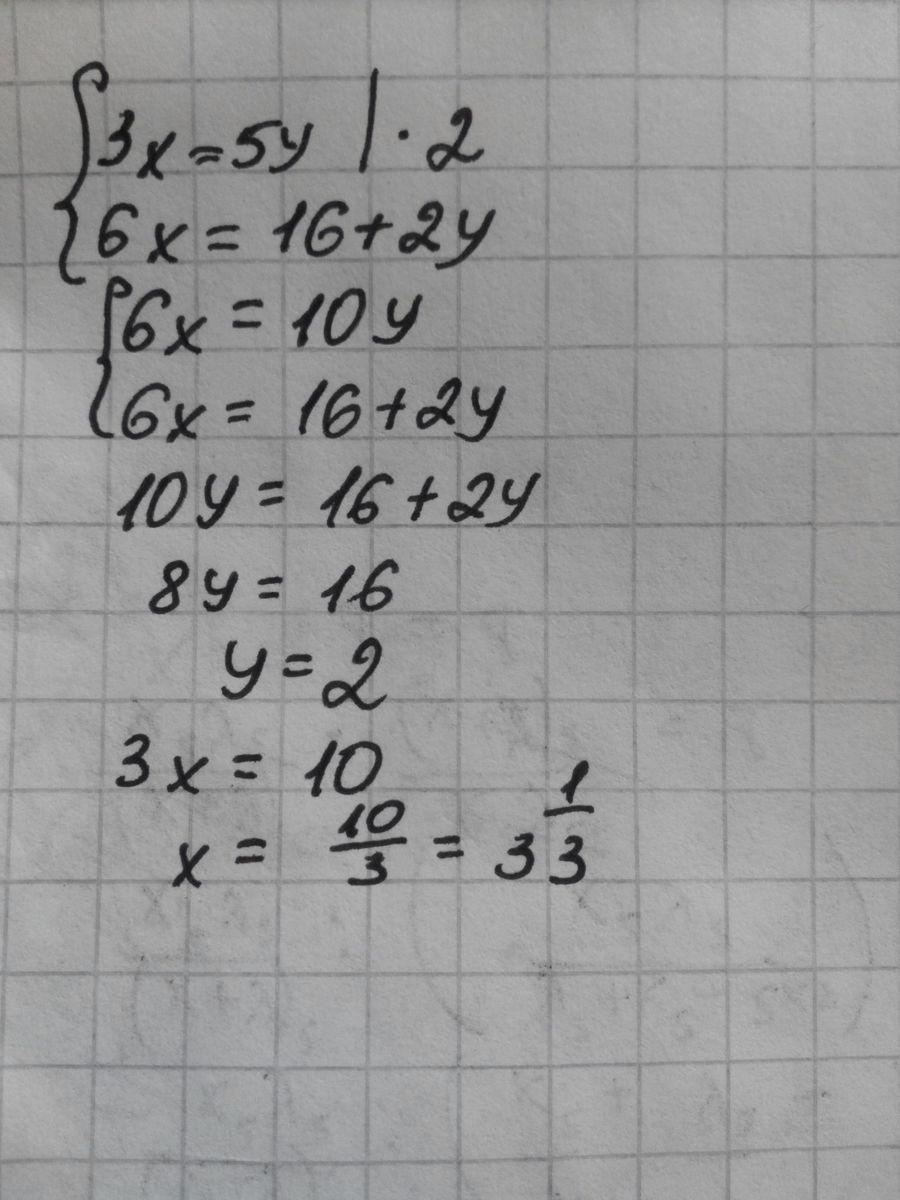 {3x = 5y | · 2
6x = 16 + 2y
{6x = 10y
6x = 16 + 2y
10y = 16 + 2y
8y = 16
y = 2
3x = 10
x = 10/3 = 3 1/3